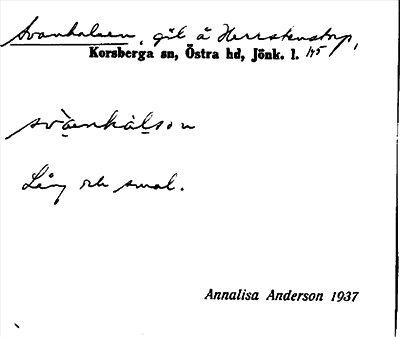 Svanhalsen, gät å Herrstenstorp,
Korsberga sn, Östra hd, Jönk. l. 145
svànhàlson
Lång och smal.
Annalisa Anderson 1937